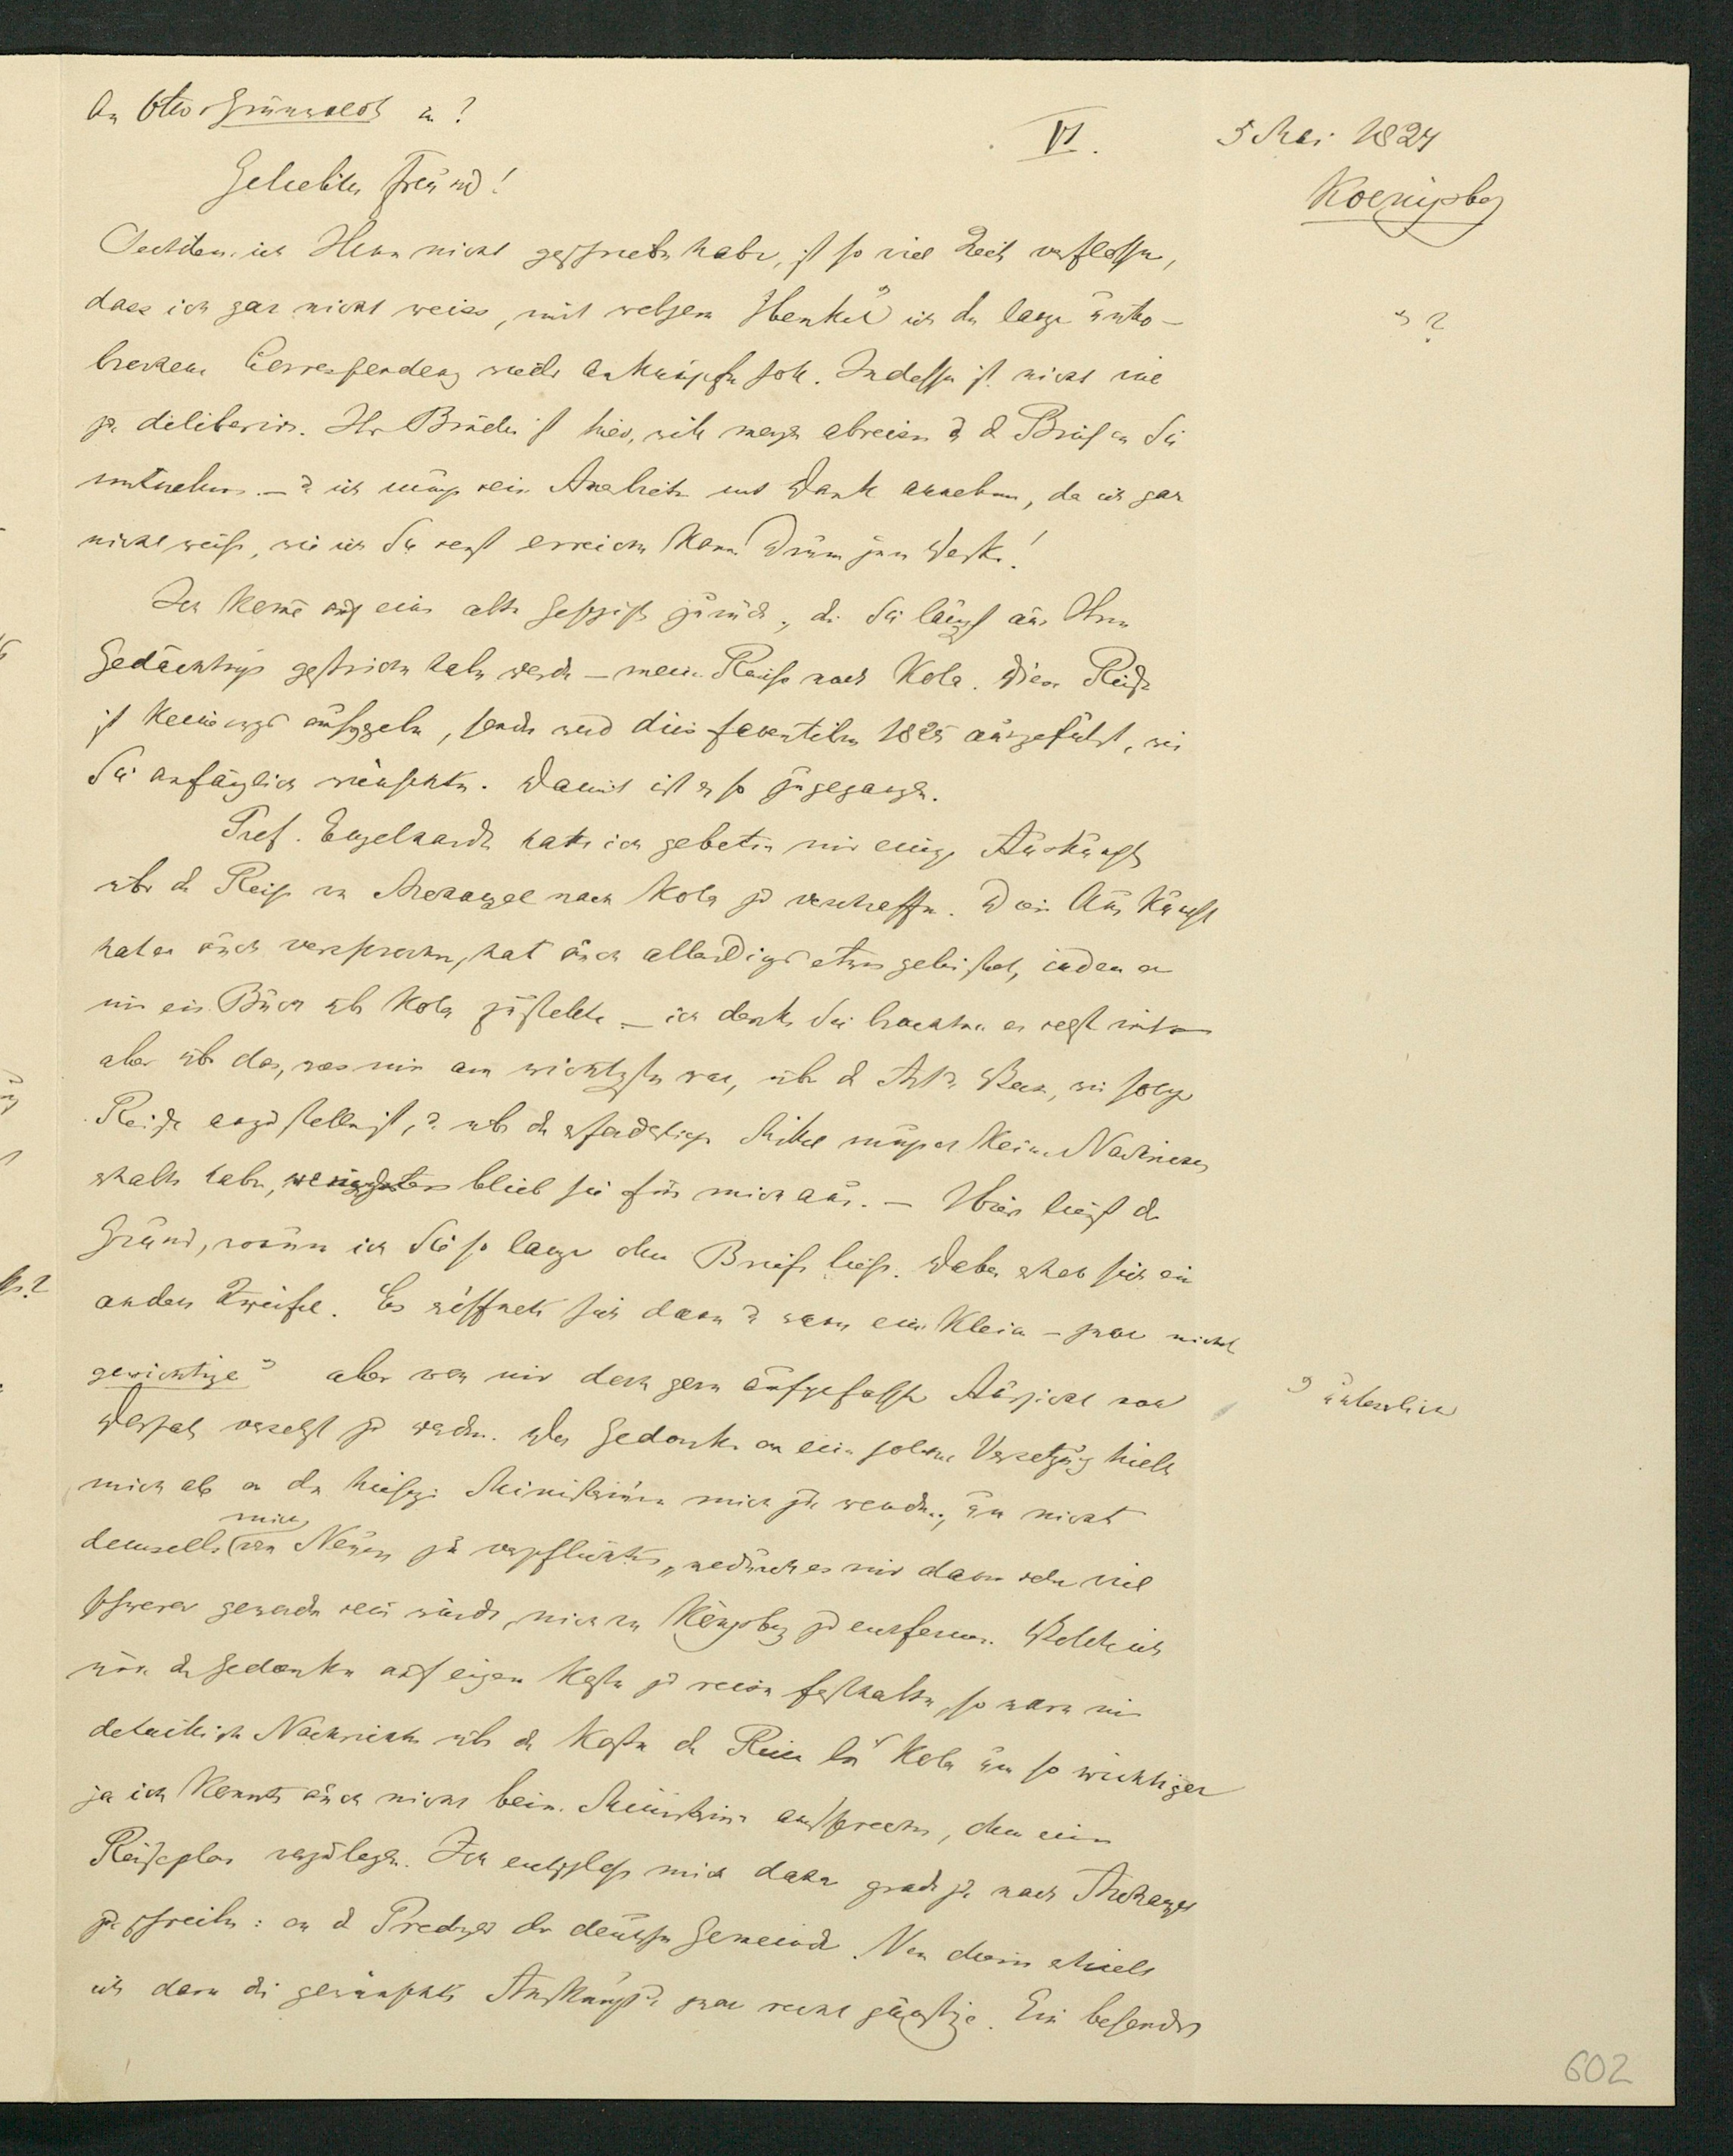 An Otto Grünwaldt in ?
VI.
5 Mai 1824
Koenigsbg
Geliebter Freund!
Seitdem ich Ihnen nicht geschrieben habe, ist so viel Zeit verflossen,
dass ich gar nicht weiss, mit welchem Henkel ich die lange unter-
? ?
brochene Correspondenz wieder anknüpfen soll. Indessen ist nicht viel
zu deliberiren. Ihr Bruder ist hier, will morgen abreisen u d Brief an Sie
mitnehmen. – u ich muss sein Anerbieten mit Dank annehmen, da ich gar
nicht weiss, wie ich Sie sonst erreichen kann. Drum zum Werke!
Ich komme auf eine alte Geschichte zurück, die Sie längst aus Ihrem
Gedächtniss gestrichen haben werden – meine Reise nach Kola. Diese Reise
ist keineswegs aufgegeben, sondern wird 1825 ausgeführt, wie
Sie anfänglich wünschten. Damit ist es so zugegangen.
Prof. Engelhardt hatte ich gebeten mir einige Auskunft
über die Reise von Archangel nach Kola zu verschaffen. Auskunft
hat er auch versprochen, hat auch allerdings etwas geleistet, indem er
mir ein Buch über Kola zustellte – ich denke Sie brachten es selbst mit
aber über das, was mir am wichtigsten war, über d Art u Weise, wie solche
Reise anzustellen ist, u über die erforderlichen Mittel muss er keine Nachrichten
erhalten haben, wenigstens blieb sie für mich aus. – Hier liegt der
Grund, warum ich Sie so lange ohne Brief liess. Dabei erhob sich ein
anderer Zweifel. Es eröffnete sich dann u wann eine kleine – zwar nicht
gewichtige ? aber von mir doch gern aufgefasste Aussicht nach
? unleserlich
Dorpat versetzt zu werden. Der Gedanke an eine solche Versetzung hielt
mich ab an das hiesige Ministerium mich zu wenden, um nicht
demselben mich von Neuem zu verpflichten, wodurch es mir dann sehr viel
schwerer geworden sein würde, mich von Königsbg zu entfernen. Wollte ich
nun den Gedanken auf eigene Kosten zu reisen festhalten, so waren mir
detaillirte Nachrichten über die Kosten der Reise bis Kola um so wichtiger
ja ich konnte auch nicht beim Ministerium ansprechen, ohne einen
Reiseplan vorzulegen. Ich entschloss mich daher grade zu nach Archangel
zu schreiben: an d Prediger der deutschen Gemeinde. Von dem erhielt
ich dann die gewünschte Auskunft u zwar recht günstige. Ein besonders
602